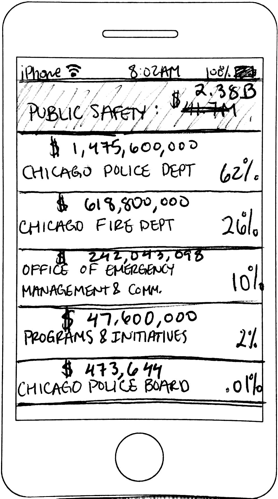 iPhone 8:02AM 100%
PUBLIC SAFETY: $ 2.38B
$ 1,475,600,000
CHICAGO POLICE DEPT 62%
$ 618,800,000
CHICAGO FIRE DEPT 26%
$ 242,043,098
OFFICE OF EMERGENCY
MANAGEMENT & COMM. 10%
$ 47,600,000
PROGRAMS & INITIATIVES 2%
$ 473,644
CHICAGO POLICE BOARD .01%